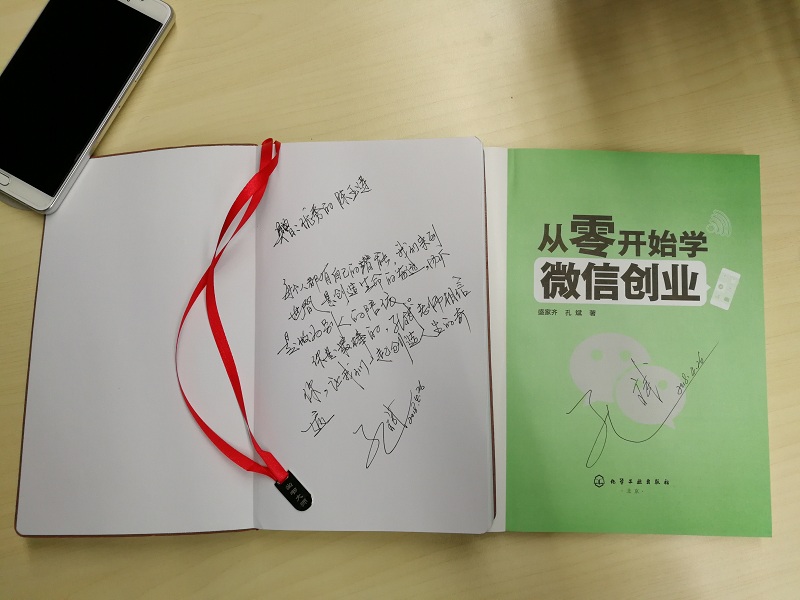 赠：优秀的陈玉涛
每个人都有自己的精彩，我们来到
世界，是创造生命的奇迹，
是做的别人的陪
你是最棒的，孔斌老师相信
你，让我们一起创造人生的奇
迹
孔斌
2018.5.26
从零开始学
微信创业
盛家齐 孔斌 著
孔斌 2018.5.26
化学工业出版社
·北京·